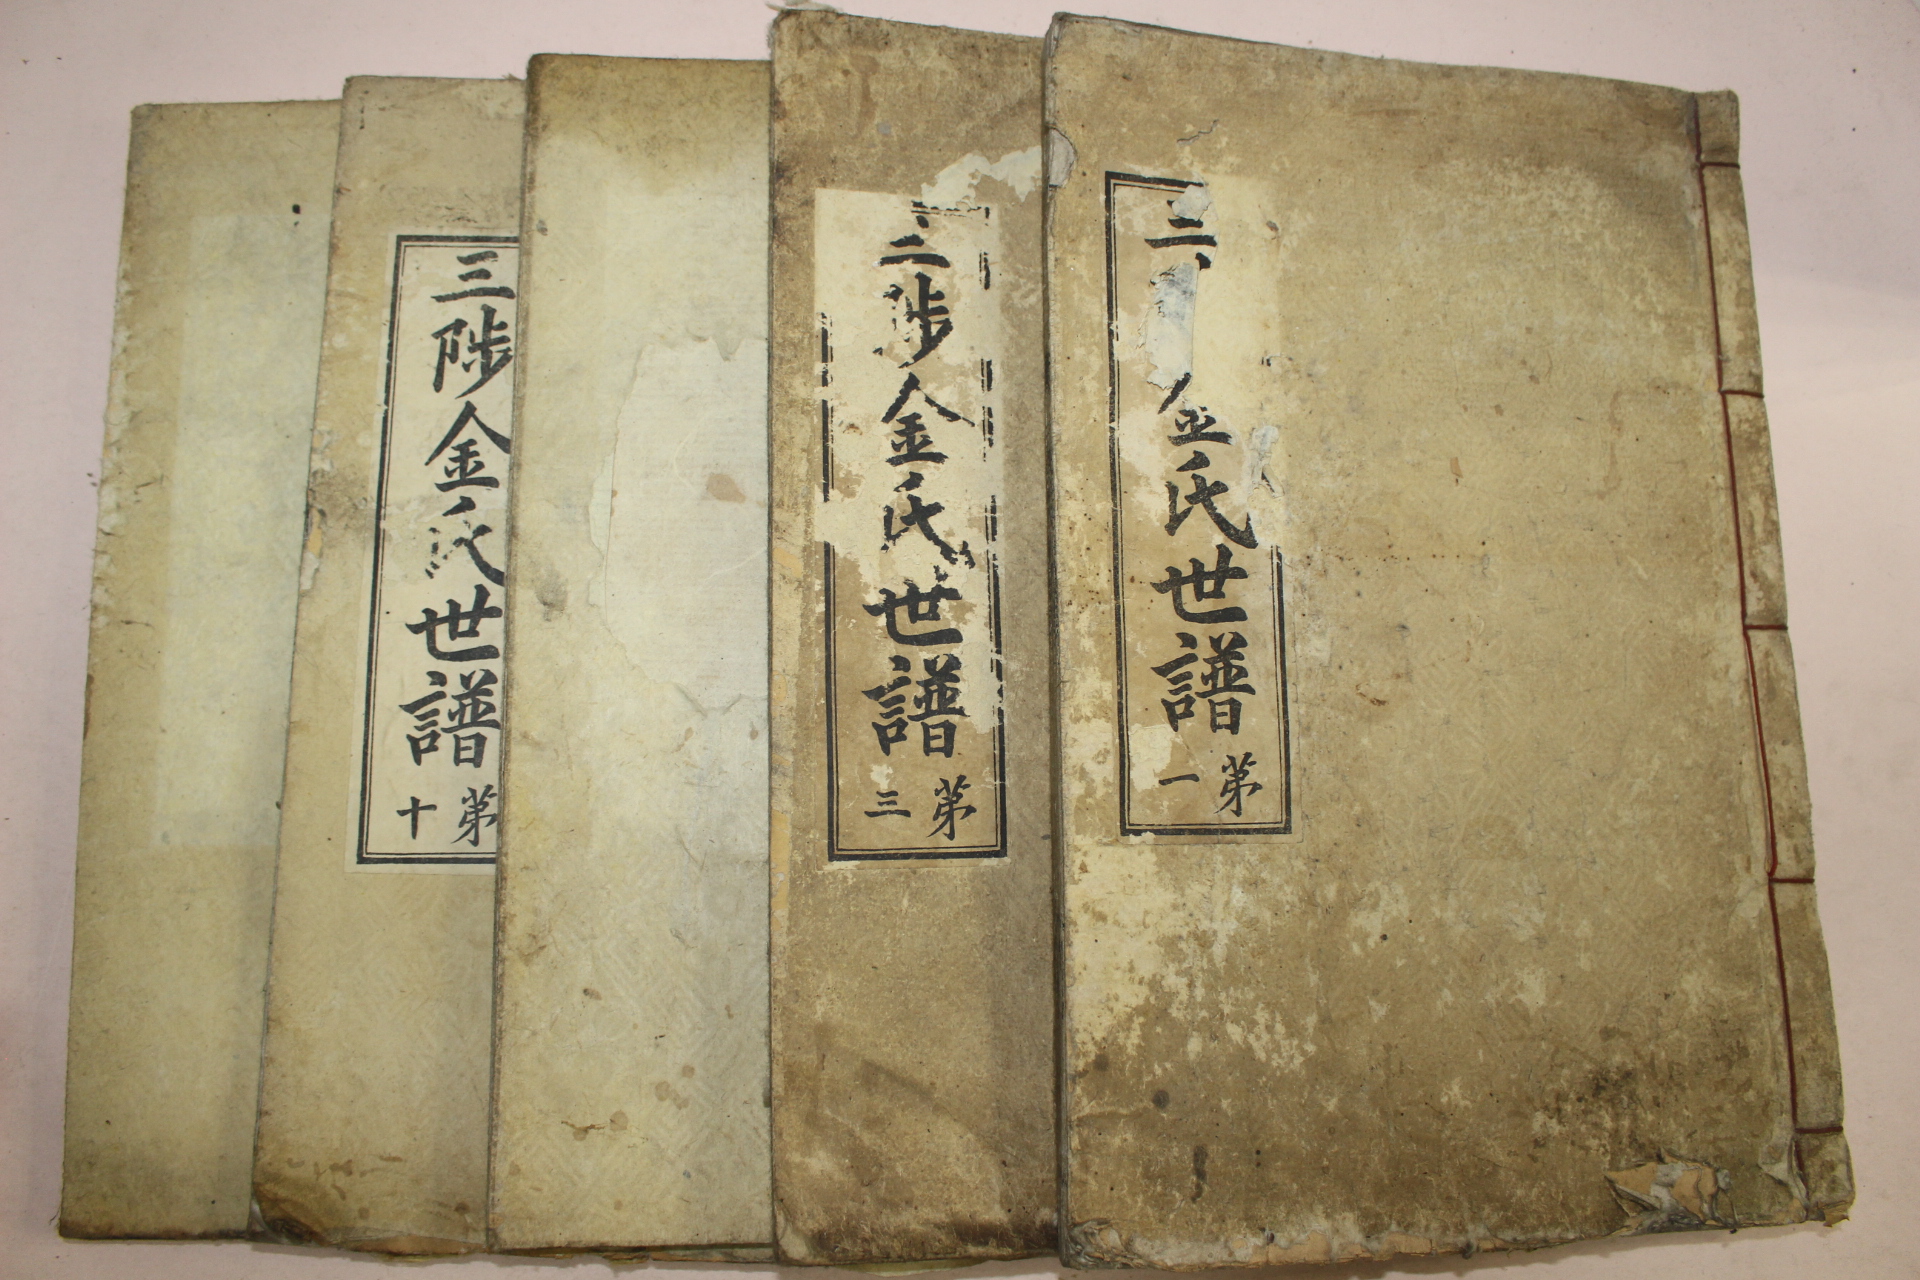 三金氏世譜
苐一
三陟金氏世譜
苐三
三陟金氏世譜
苐十